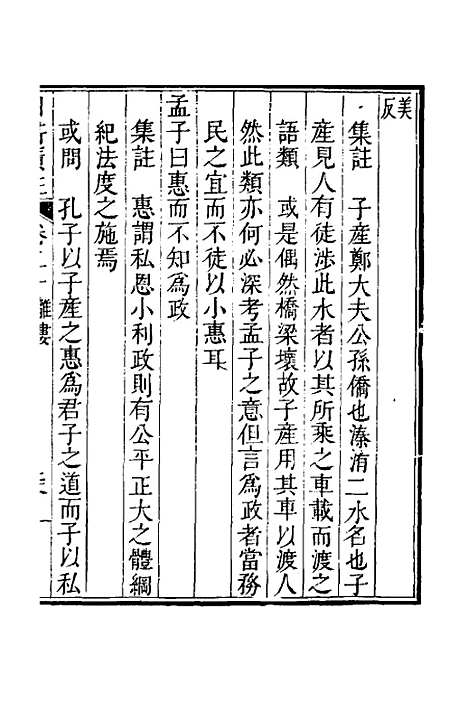 美反
集註　子產鄭大夫公孫僑也溱洧二水名也子
產見人有徒涉此水者以其所乘之車載而渡之
語類　或是偶然橋梁壞故子產用其車以渡人
然此類亦何必深考孟子之意但言爲政者當務
民之宜而不徒以小惠耳
孟子曰惠而不知爲政
集註　惠謂私恩小利政則有公平正大之體綱
紀法度之施焉
或問　孔子以子產之惠爲君子之道而子以私
離婁